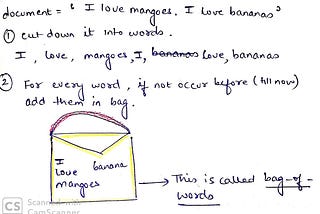 document = " I love mangoes. I love bananas"
① cut down it into words.
I, love, mangoes, I, bananas love, bananas
② For every word, if not occur before (till now)
add them in bag.
I banana
love
mangoes
→ This is called bag-of-
words
CS Scanned with
CamScanner